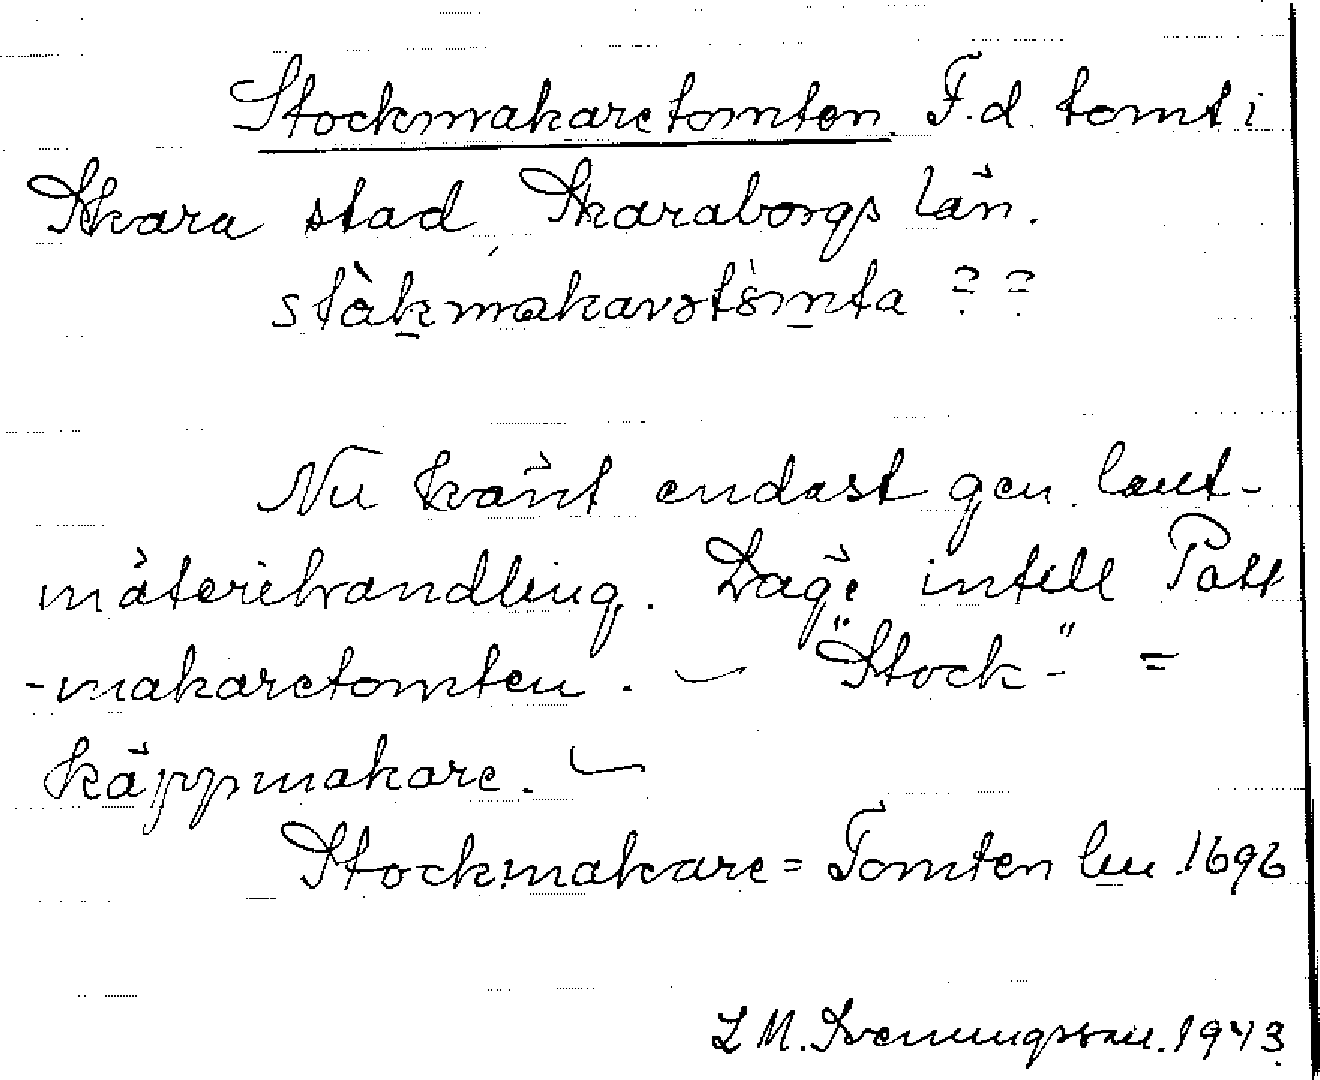 Stockmakaretomten F.d. tomt i
Skara stad, Skaraborgs län.
Nu känt endast gen. lant-
mäterihandling. Låg intill Pott
-makaretomten. — "Stock-" =
käppmakare. —
Stockmakare=Tomten lm. 1696
L M. Svenungsson. 1943